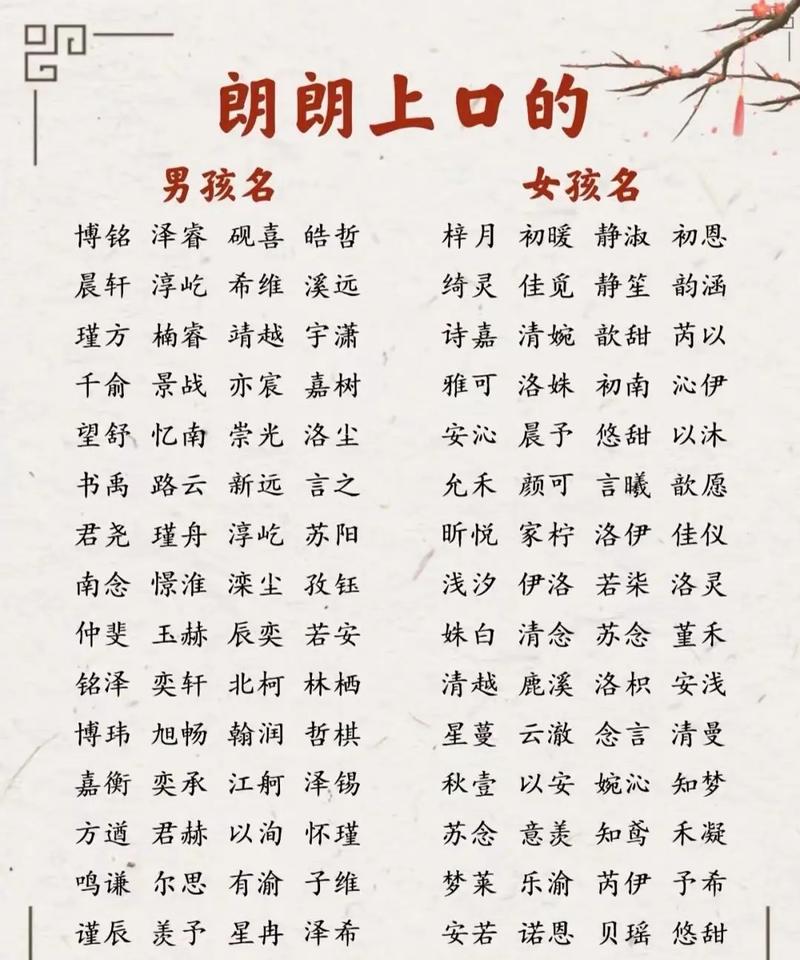 朗朗上口的
男孩名 女孩名
博铭 泽睿 砚喜 皓哲 梓月 初暖 静淑 初恩
晨轩 淳屹 希维 溪远 绮灵 佳觅 静笙 韵涵
瑾方 楠睿 靖越 宇潇 诗嘉 清婉 歆甜 芮以
千俞 景战 亦宸 嘉树 雅可 洛姝 初南 沁伊
望舒 忆南 崇光 洛尘 安沁 晨予 悠甜 以沐
书禹 路云 新远 言之 允禾 颜可 言曦 歆愿
君尧 瑾舟 淳屹 苏阳 昕悦 家柠 洛伊 佳仪
南念 憬淮 滦尘 孜钰 浅汐 伊洛 若柒 洛灵
仲斐 玉赫 辰奕 若安 姝白 清念 苏念 堇禾
铭泽 奕轩 北柯 林栖 清越 鹿溪 洛枳 安浅
博玮 旭畅 翰润 哲棋 星蔓 云澈 念言 清曼
嘉衡 奕承 江舸 泽锡 秋壹 以安 婉沁 知梦
方遒 君赫 以洵 怀瑾 苏念 意羡 知鸢 禾凝
鸣谦 尔思 有渝 子维 梦莱 乐渝 芮伊 予希
谨辰 羡予 星冉 泽希 安若 诺恩 贝瑶 悠甜